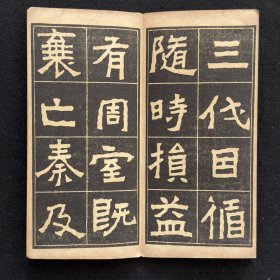 三代目循
隨時損益
有周室既
衰亡秦及